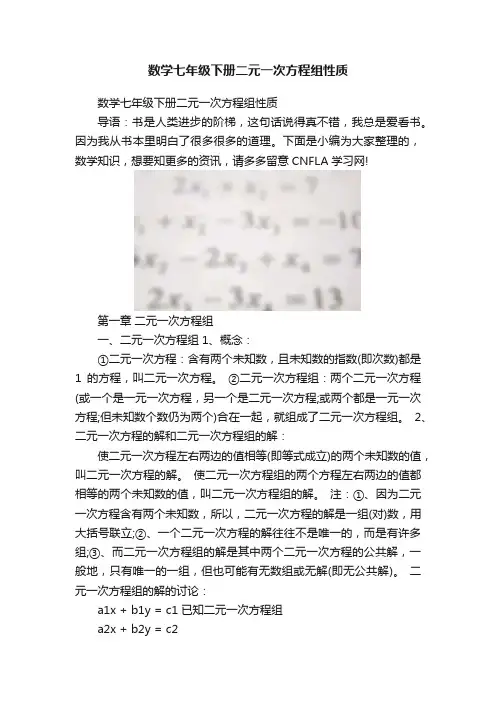 数学七年级下册二元一次方程组性质
数学七年级下册二元一次方程组性质
导语：书是人类进步的阶梯，这句话说得真不错，我总是爱看书。
因为我从书本里明白了很多很多的道理。下面是小编为大家整理的，
数学知识，想要知更多的资讯，请多多留意CNFLA学习网!
2x₁ + x₂ = 7
+ x₂ - 3x₃ = -10
x₂ - 2x₃ + x₄ = 7
2x₃ - 3x₄ = 13
第一章 二元一次方程组
一、二元一次方程组 1、概念：
①二元一次方程：含有两个未知数，且未知数的指数(即次数)都是
1 的方程，叫二元一次方程。 ②二元一次方程组：两个二元一次方程
(或一个是一元一次方程，另一个是二元一次方程;或两个都是一元一次
方程;但未知数个数仍为两个)合在一起，就组成了二元一次方程组。 2、
二元一次方程的解和二元一次方程组的解：
使二元一次方程左右两边的值相等(即等式成立)的两个未知数的值，
叫二元一次方程的解。 使二元一次方程组的两个方程左右两边的值都
相等的两个未知数的值，叫二元一次方程组的解。 注：①、因为二元
一次方程含有两个未知数，所以，二元一次方程的解是一组(对)数，用
大括号联立;②、一个二元一次方程的解往往不是唯一的，而是有许多
组;③、而二元一次方程组的解是其中两个二元一次方程的公共解，一
般地，只有唯一的一组，但也可能有无数组或无解(即无公共解)。 二
元一次方程组的解的讨论：
a1x + b1y = c1 已知二元一次方程组
a2x + b2y = c2